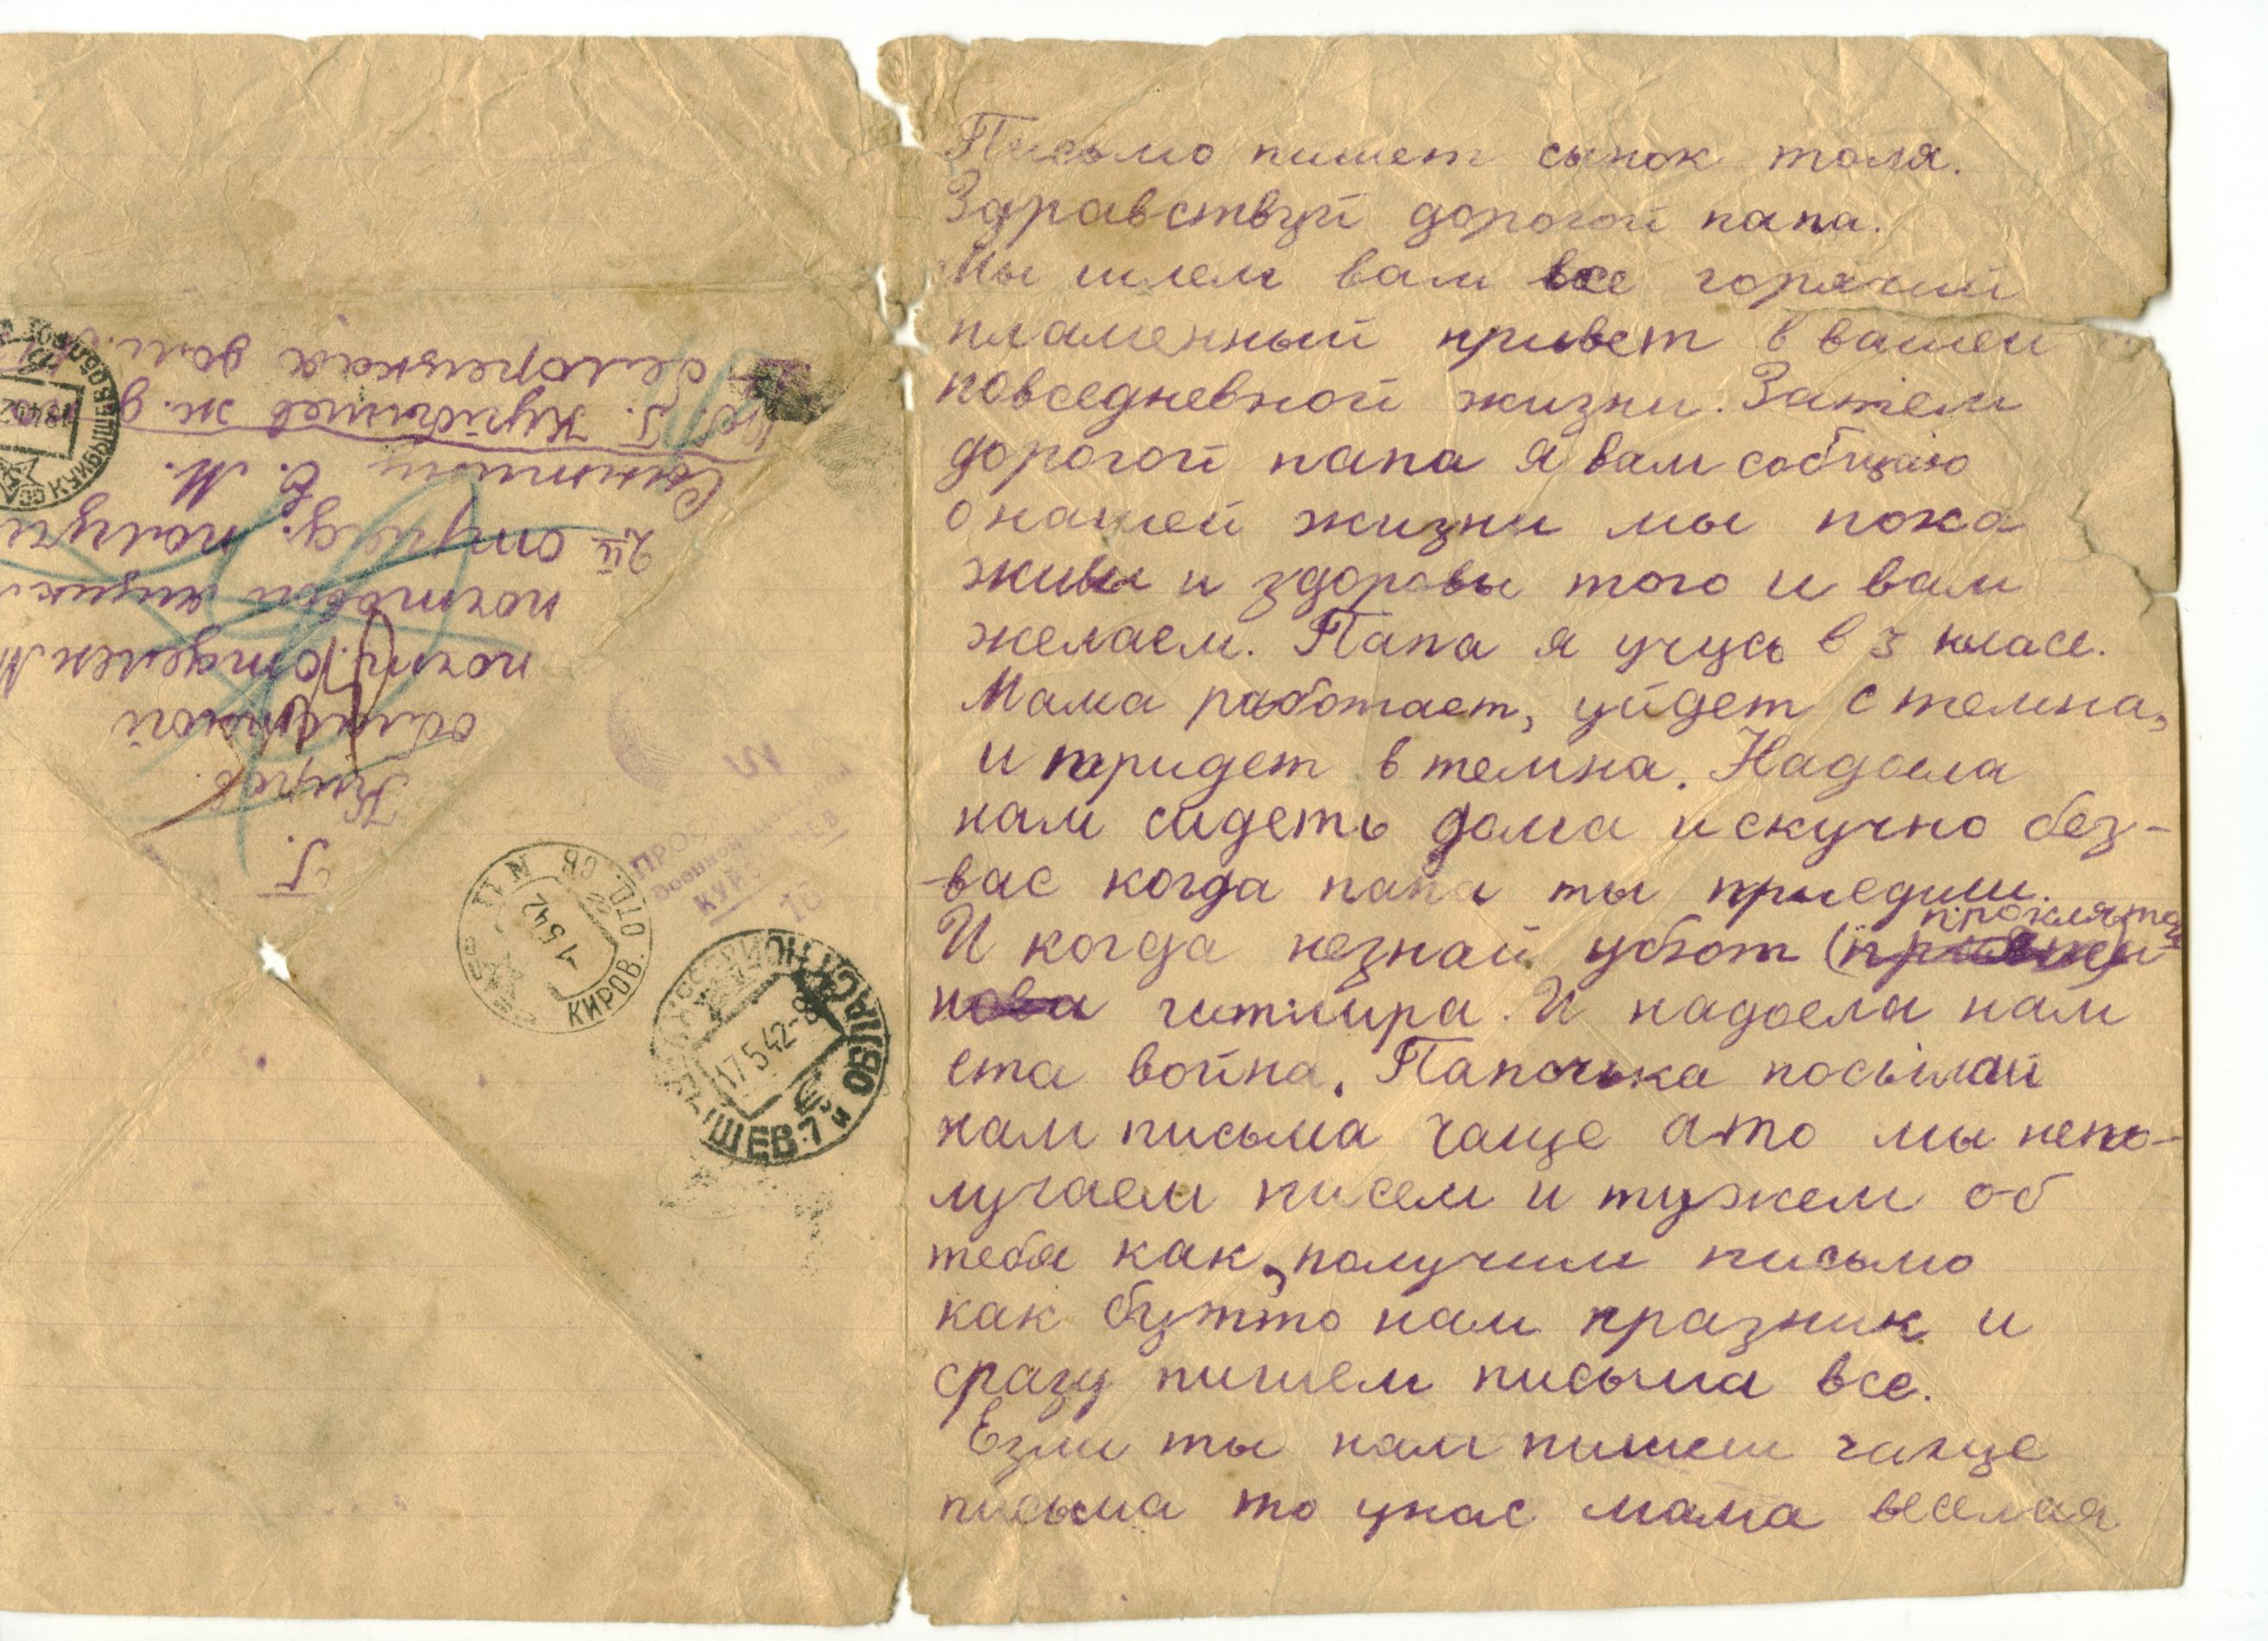 Письмо пишет сынок толя.
Здравствуй дорогой папа.
Мы шлем вам все горячий
пламенный привет в вашей
повседневной жизни. Затем
дорогой папа я вам собщаю
о нашей жизни мы пока
живы и здоровы того и вам
желаем. Папа я учусь в 3 класе.
Мама работает, уйдет с темна,
и придет в темна. Надоела
нам сидеть дома и скучно без-
-вас когда папа ты приедиш.
И когда незнай убют (проклятова
гитлира. И надоела нам
ета война. Папочька посылай
нам письма чаще ато мы непо-
лучаем писем и тужем об
тебя как, получим письмо
как бутто нам празник и
сразу пишем письма все.
Езли ты нам пишеш чаще
письма то унас мама веселая
Г.
Киров.
областной
почт. отделен
почтовой ящик
2й отряд. получ
Е. М.
Г. Куйбышев ж. д.
Белорецкая дом.
КУЙБЫШЕВ ОБЛ.
КИРОВ. ОТД. СВ.
1 5 42
17.5.42-8
ШЕВ-7 й ОБЛАСТНОЙ
ПРОС
Военной
КУЙ